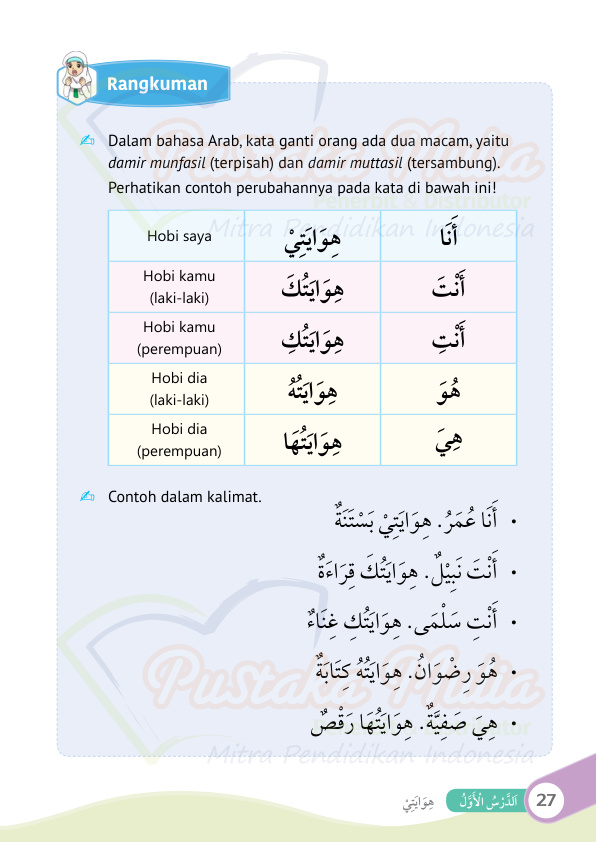 Rangkuman
✍ Dalam bahasa Arab, kata ganti orang ada dua macam, yaitu
damir munfasil (terpisah) dan damir muttasil (tersambung).
Perhatikan contoh perubahannya pada kata di bawah ini!
Hobi saya هِوَايَتِيْ أَنَا
Hobi kamu
(laki-laki) هِوَايَتُكَ أَنْتَ
Hobi kamu
(perempuan) هِوَايَتُكِ أَنْتِ
Hobi dia
(laki-laki) هِوَايَتُهُ هُوَ
Hobi dia
(perempuan) هِوَايَتُهَا هِيَ
✍ Contoh dalam kalimat.
• أَنَا عُمَرُ. هِوَايَتِيْ بَسْتَنَةٌ
• أَنْتَ نَبِيْلٌ. هِوَايَتُكَ قِرَاءَةٌ
• أَنْتِ سَلْمَى. هِوَايَتُكِ غِنَاءٌ
• هُوَ رِضْوَانُ. هِوَايَتُهُ كِتَابَةٌ
• هِيَ صَفِيَّةٌ. هِوَايَتُهَا رَقْصٌ
Pustaka Mulia
Penerbit & Distributor
Mitra Pendidikan Indonesia
Pustaka Mulia
Mitra Pendidikan Indonesia
هِوَايَتِيْ اَلدَّرْسُ الْأَوَّلُ 27